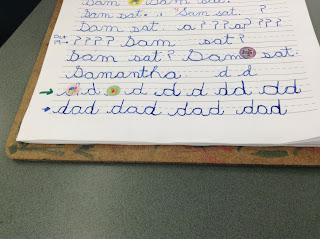 Sam Sam sat.
Sam sat. , Sam sat. ?
Sam sat. a????a????
???? Sam sat?
Sam sat? Sam sat.
Samantha d d
d d d d d dd dd
dad dad dad dad